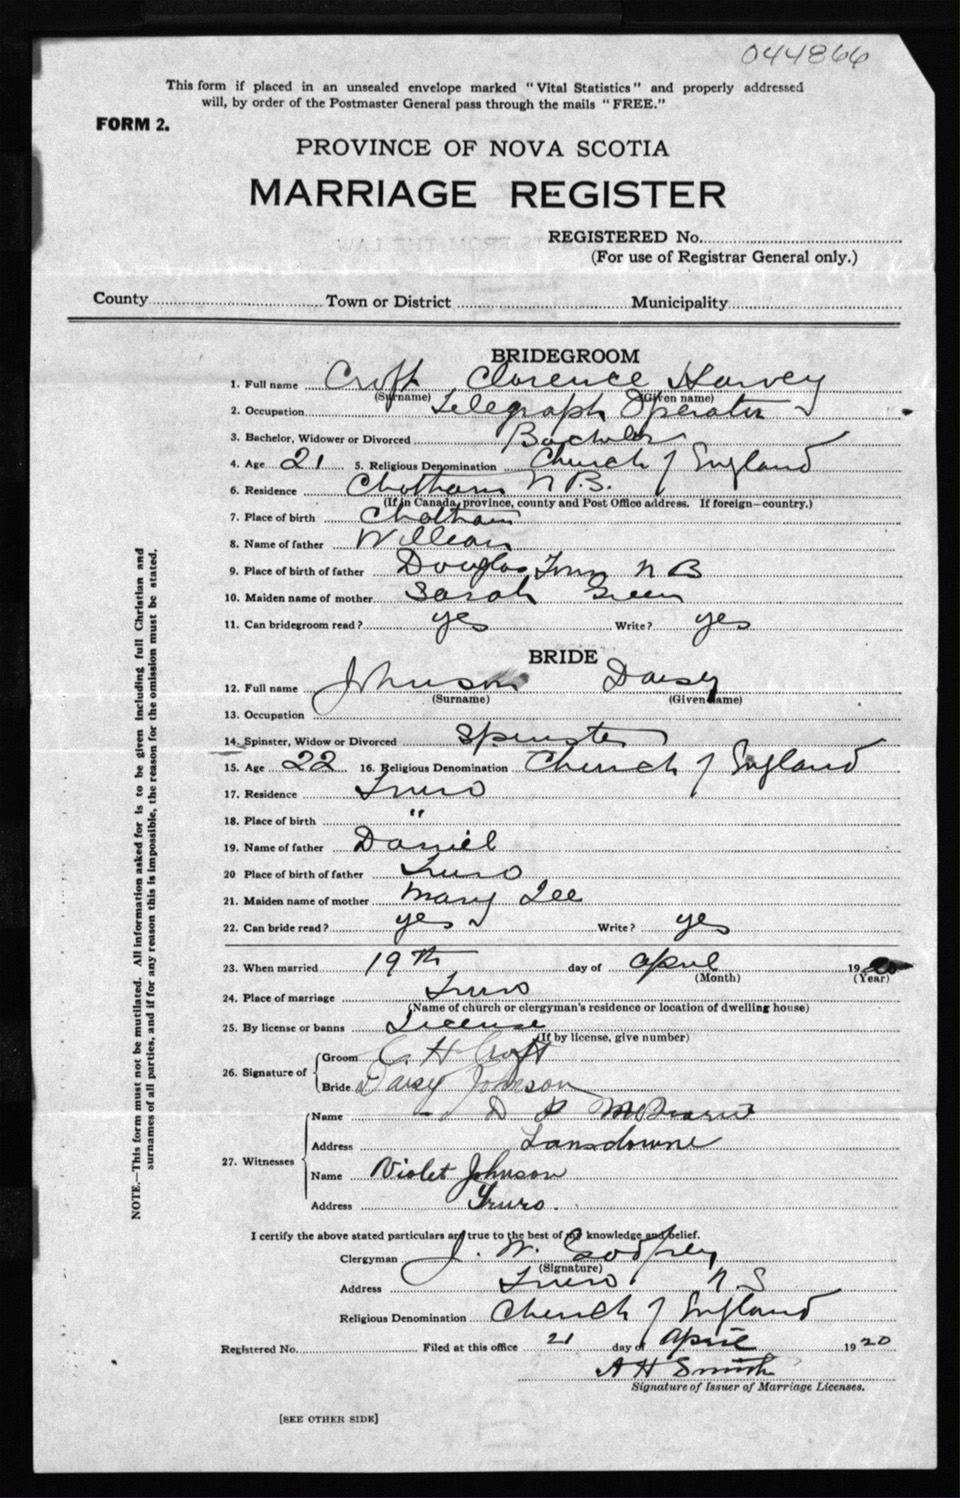 044866
This form if placed in an unsealed envelope marked "Vital Statistics" and properly addressed
will, by order of the Postmaster General pass through the mails "FREE."
FORM 2.
PROVINCE OF NOVA SCOTIA
MARRIAGE REGISTER
REGISTERED No.
(For use of Registrar General only.)
County Town or District Municipality
BRIDEGROOM
1. Full name Croft Clarence Harvey
(Surname) (Given name)
2. Occupation Telegraph Operator
3. Bachelor, Widower or Divorced Bachelor
4. Age 21 5. Religious Denomination Church of England
6. Residence Chatham N.B.
(If in Canada, province, county and Post Office address. If foreign—country.)
7. Place of birth Chatham
8. Name of father William
9. Place of birth of father Douglas Town N B
10. Maiden name of mother Sarah Green
11. Can bridegroom read? yes Write? yes
BRIDE
12. Full name Johnson Daisy
(Surname) (Given name)
13. Occupation
14. Spinster, Widow or Divorced Spinster
15. Age 22 16. Religious Denomination Church of England
17. Residence Truro
18. Place of birth "
19. Name of father Daniel
20 Place of birth of father Truro
21. Maiden name of mother Mary Lee
22. Can bride read? yes Write? yes
23. When married 19th day of April 1920
(Month) (Year)
24. Place of marriage Truro
(Name of church or clergyman's residence or location of dwelling house)
25. By license or banns License
(If by license, give number)
26. Signature of Groom C. H. Croft
Bride Daisy Johnson
27. Witnesses Name D P
Address Lansdowne
Name Violet Johnson
Address Truro.
I certify the above stated particulars are true to the best of my knowledge and belief.
Clergyman J. W. Godfrey
(Signature)
Address Truro N S
Religious Denomination Church of England
Registered No. Filed at this office 21 day of April 1920
A H Smith
Signature of Issuer of Marriage Licenses.
[SEE OTHER SIDE]
NOTE.—This form must not be mutilated. All information asked for is to be given including full Christian and
surnames of all parties, and if for any reason this is impossible, the reason for the omission must be stated.